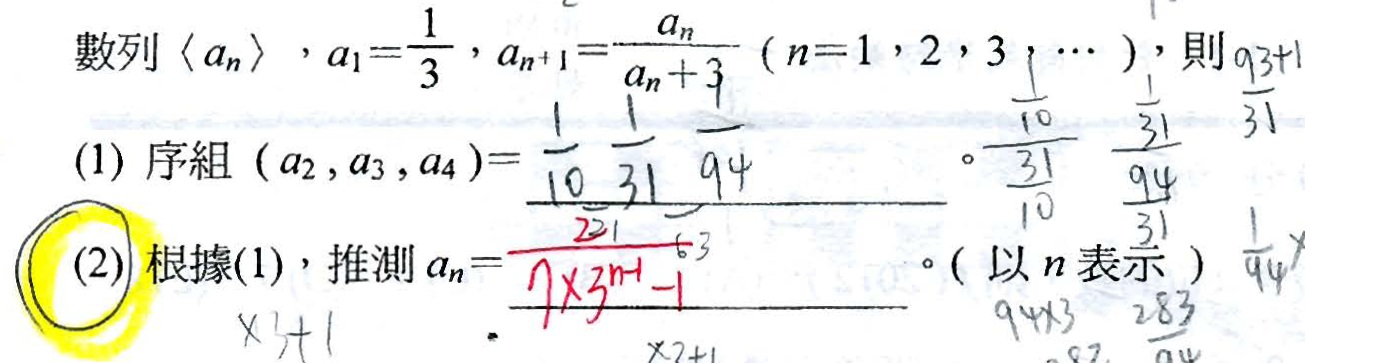 數列〈 aₙ 〉，a₁＝1/3，aₙ₊₁＝aₙ/(aₙ＋3)（ n＝1，2，3，⋯ ），則
93+1
31
(1) 序組（ a₂ , a₃ , a₄ ）＝ 1/10 1/31 1/94 。
1/10 1/31
31/10 94/31
21 63
(2) 根據(1)，推測 aₙ＝ 2/(7×3ⁿ⁻¹−1) 。（ 以 n 表示 ）
1/94
×3+1
×3+1
94×3 283/94
282